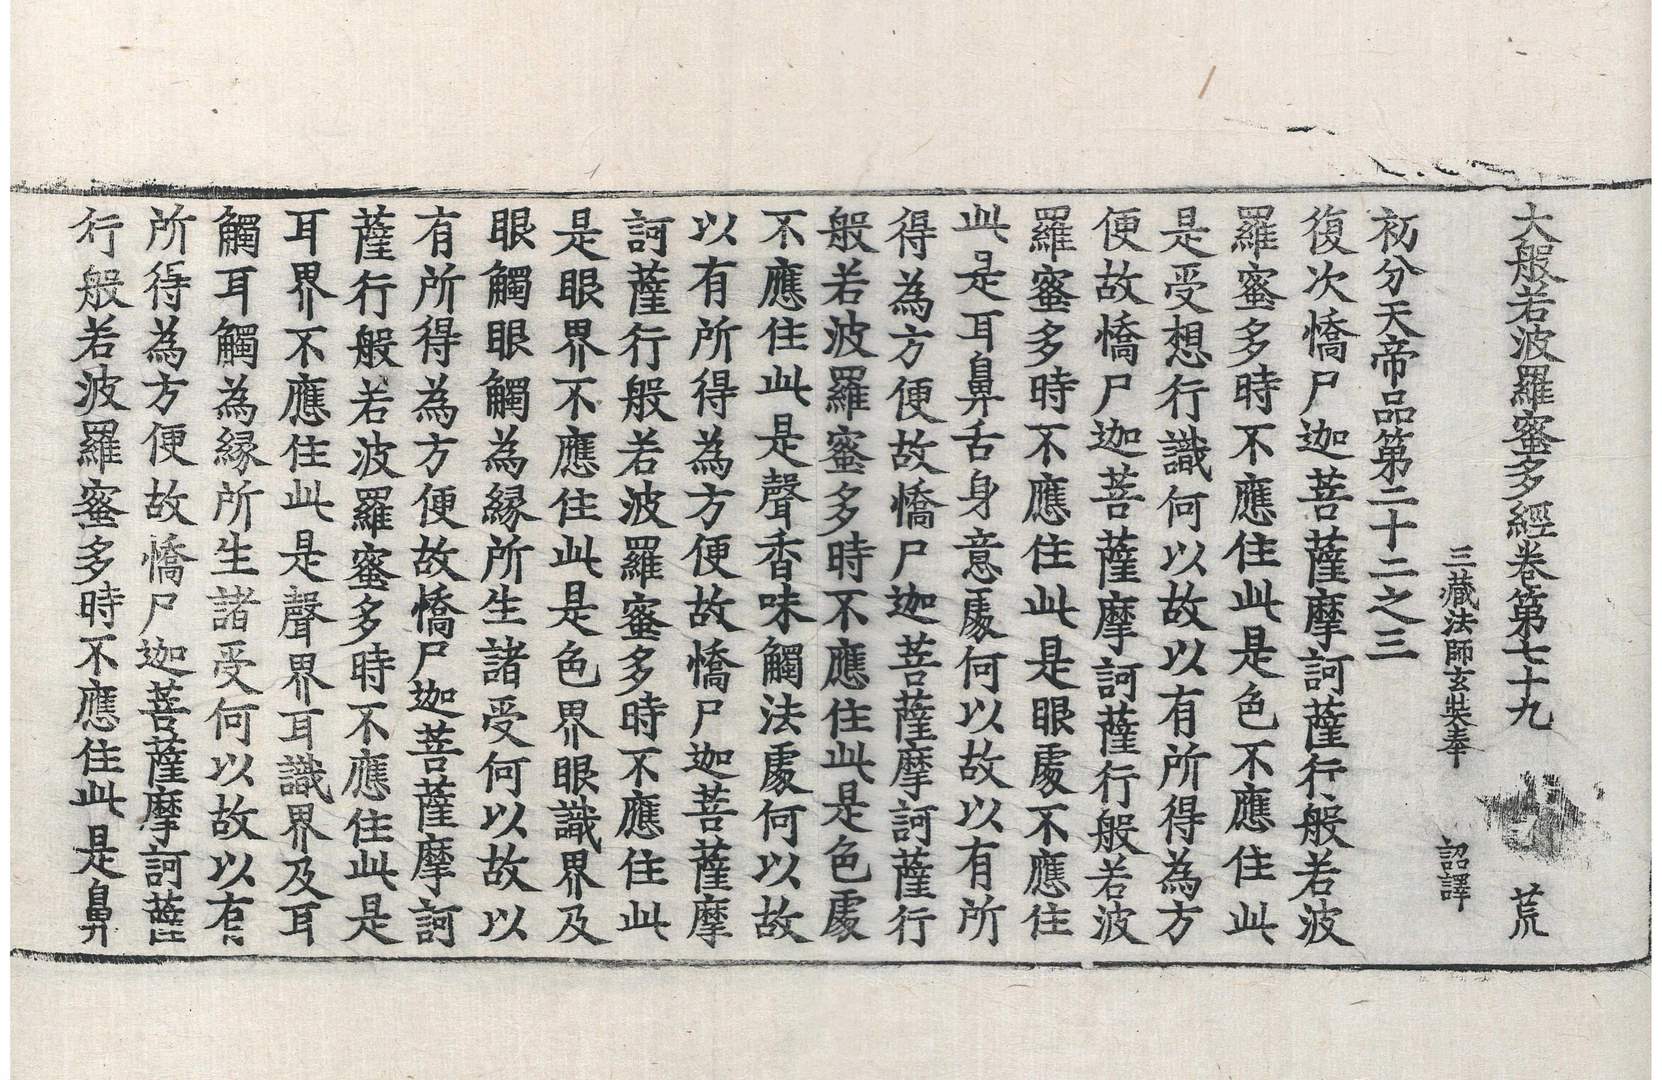 大般若波羅蜜多經卷第七十九 荒
三藏法師玄奘奉 詔譯
初分天帝品第二十二之三
復次憍尸迦菩薩摩訶薩行般若波
羅蜜多時不應住此是色不應住此
是受想行識何以故以有所得為方
便故憍尸迦菩薩摩訶薩行般若波
羅蜜多時不應住此是眼處不應住
此是耳鼻舌身意處何以故以有所
得為方便故憍尸迦菩薩摩訶薩行
般若波羅蜜多時不應住此是色處
不應住此是聲香味觸法處何以故
以有所得為方便故憍尸迦菩薩摩
訶薩行般若波羅蜜多時不應住此
是眼界不應住此是色界眼識界及
眼觸眼眼觸為緣所生諸受何以故以
有所得為方便故憍尸迦菩薩摩訶
薩行般若波羅蜜多時不應住此是
耳界不應住此是聲界耳識界及耳
觸耳觸為緣所生諸受何以故以有
所得為方便故憍尸迦菩薩摩訶薩
行般若波羅蜜多時不應住此是鼻